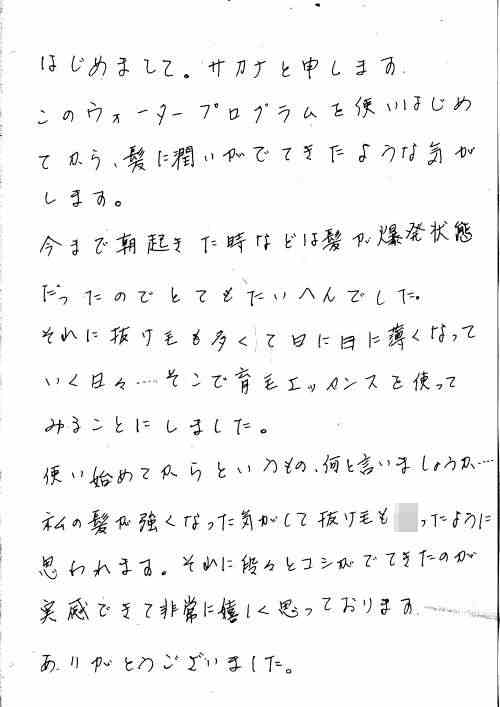 はじめまして。サカナと申します.
このウォータープログラムを使いはじめ
てから、髪に潤いがでてきたような気が
します。
今まで朝起きた時などは髪が爆発状態
だったのでとてもたいへんでした.
それに抜け毛も多くて日に日に薄くなって
いく日々…そこで育毛エッセンスを使って
みることにしました。
使い始めてからというもの、何と言いましょうか…
私の髪が強くなった気がして抜け毛も ったように
思われます。それに段々とコシがでてきたのが
実感できて非常に嬉しく思っております.
ありがとうございました。